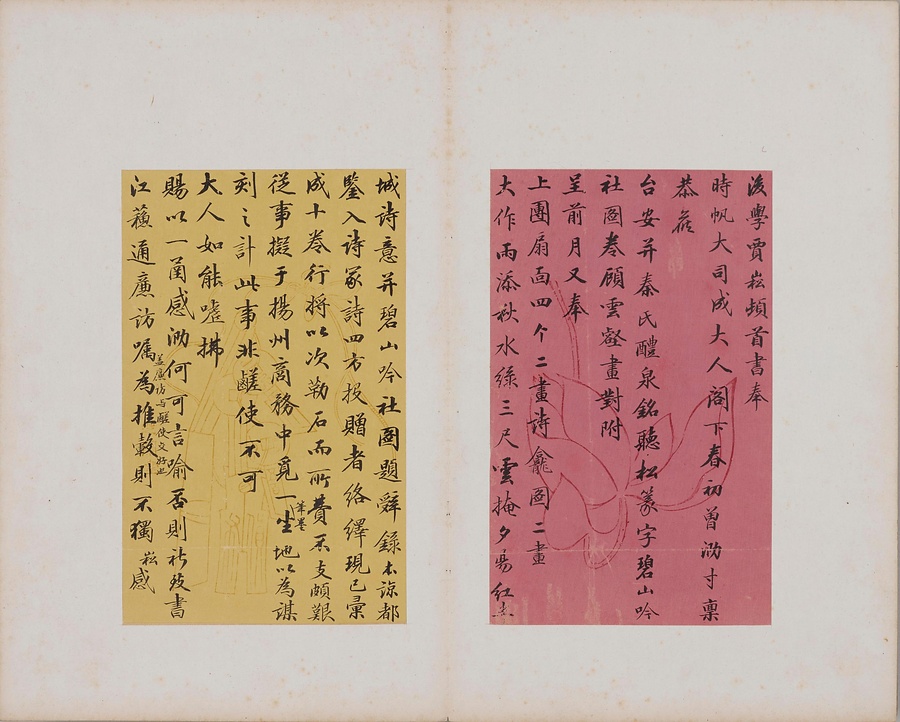 後學賈崧頓首書奉
時帆大司成大人閣下春初曾泐寸稟
恭蒞
台安并秦氏醴泉銘聽松篆字碧山吟
社圖卷顧雲壑畫對附
呈前月又奉
上團扇面四个二畫詩龕圖二畫
大作雨添秋水綠三尺雲掩夕陽紅
城詩意并碧山吟社圖題辭錄本諒都
鑒入詩冢詩四方投贈者絡繹現已彙
成十卷行將以次勒石而所費不支頗艱
從事擬于揚州商務中覓一坐地以為謀
筆墨
刻之計此事非鹺使不可
大人如能噓拂
賜以一函感泐何可言喻否則祈致書
江蘓通廉訪囑為推轂則不獨崧感
蓋廉訪与鹺使交好也